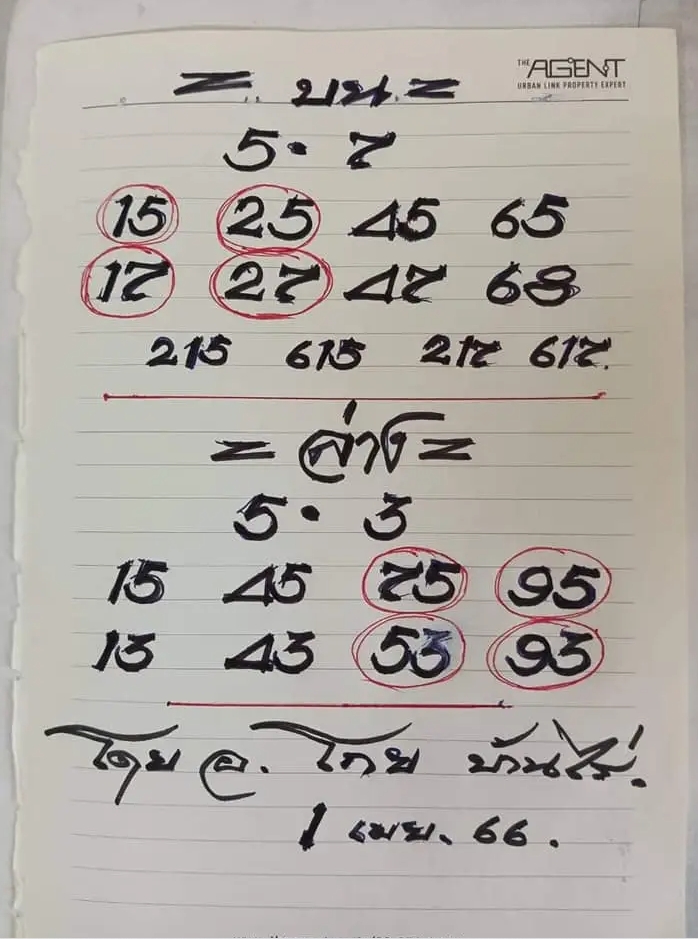 THE AGENT
URBAN LINK PROPERTY EXPERT
= บน =
5 • 7
15 25 45 65
17 27 47 68
215 615 217 617.
= ล่าง =
5 • 3
15 45 75 95
13 43 53 93
โดย อ. โกย บ้านไร่.
1 เมย. 66.